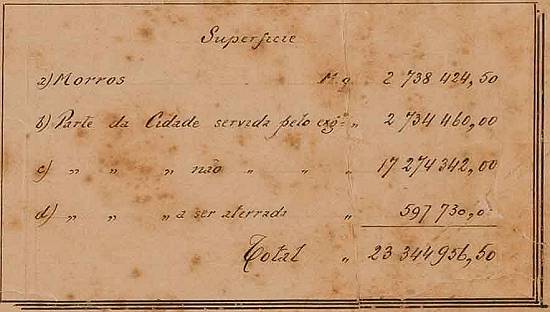 Superficie
a) Morros M. q. 2 738 424,50
b) Parte da Cidade servida pelo exgto „ 2 734 460,00
c) „ „ „ não „ „ „ 17 274 342,00
d) „ „ „ a ser aterrada „ 597 730,0
Total „ 23 344 956,50